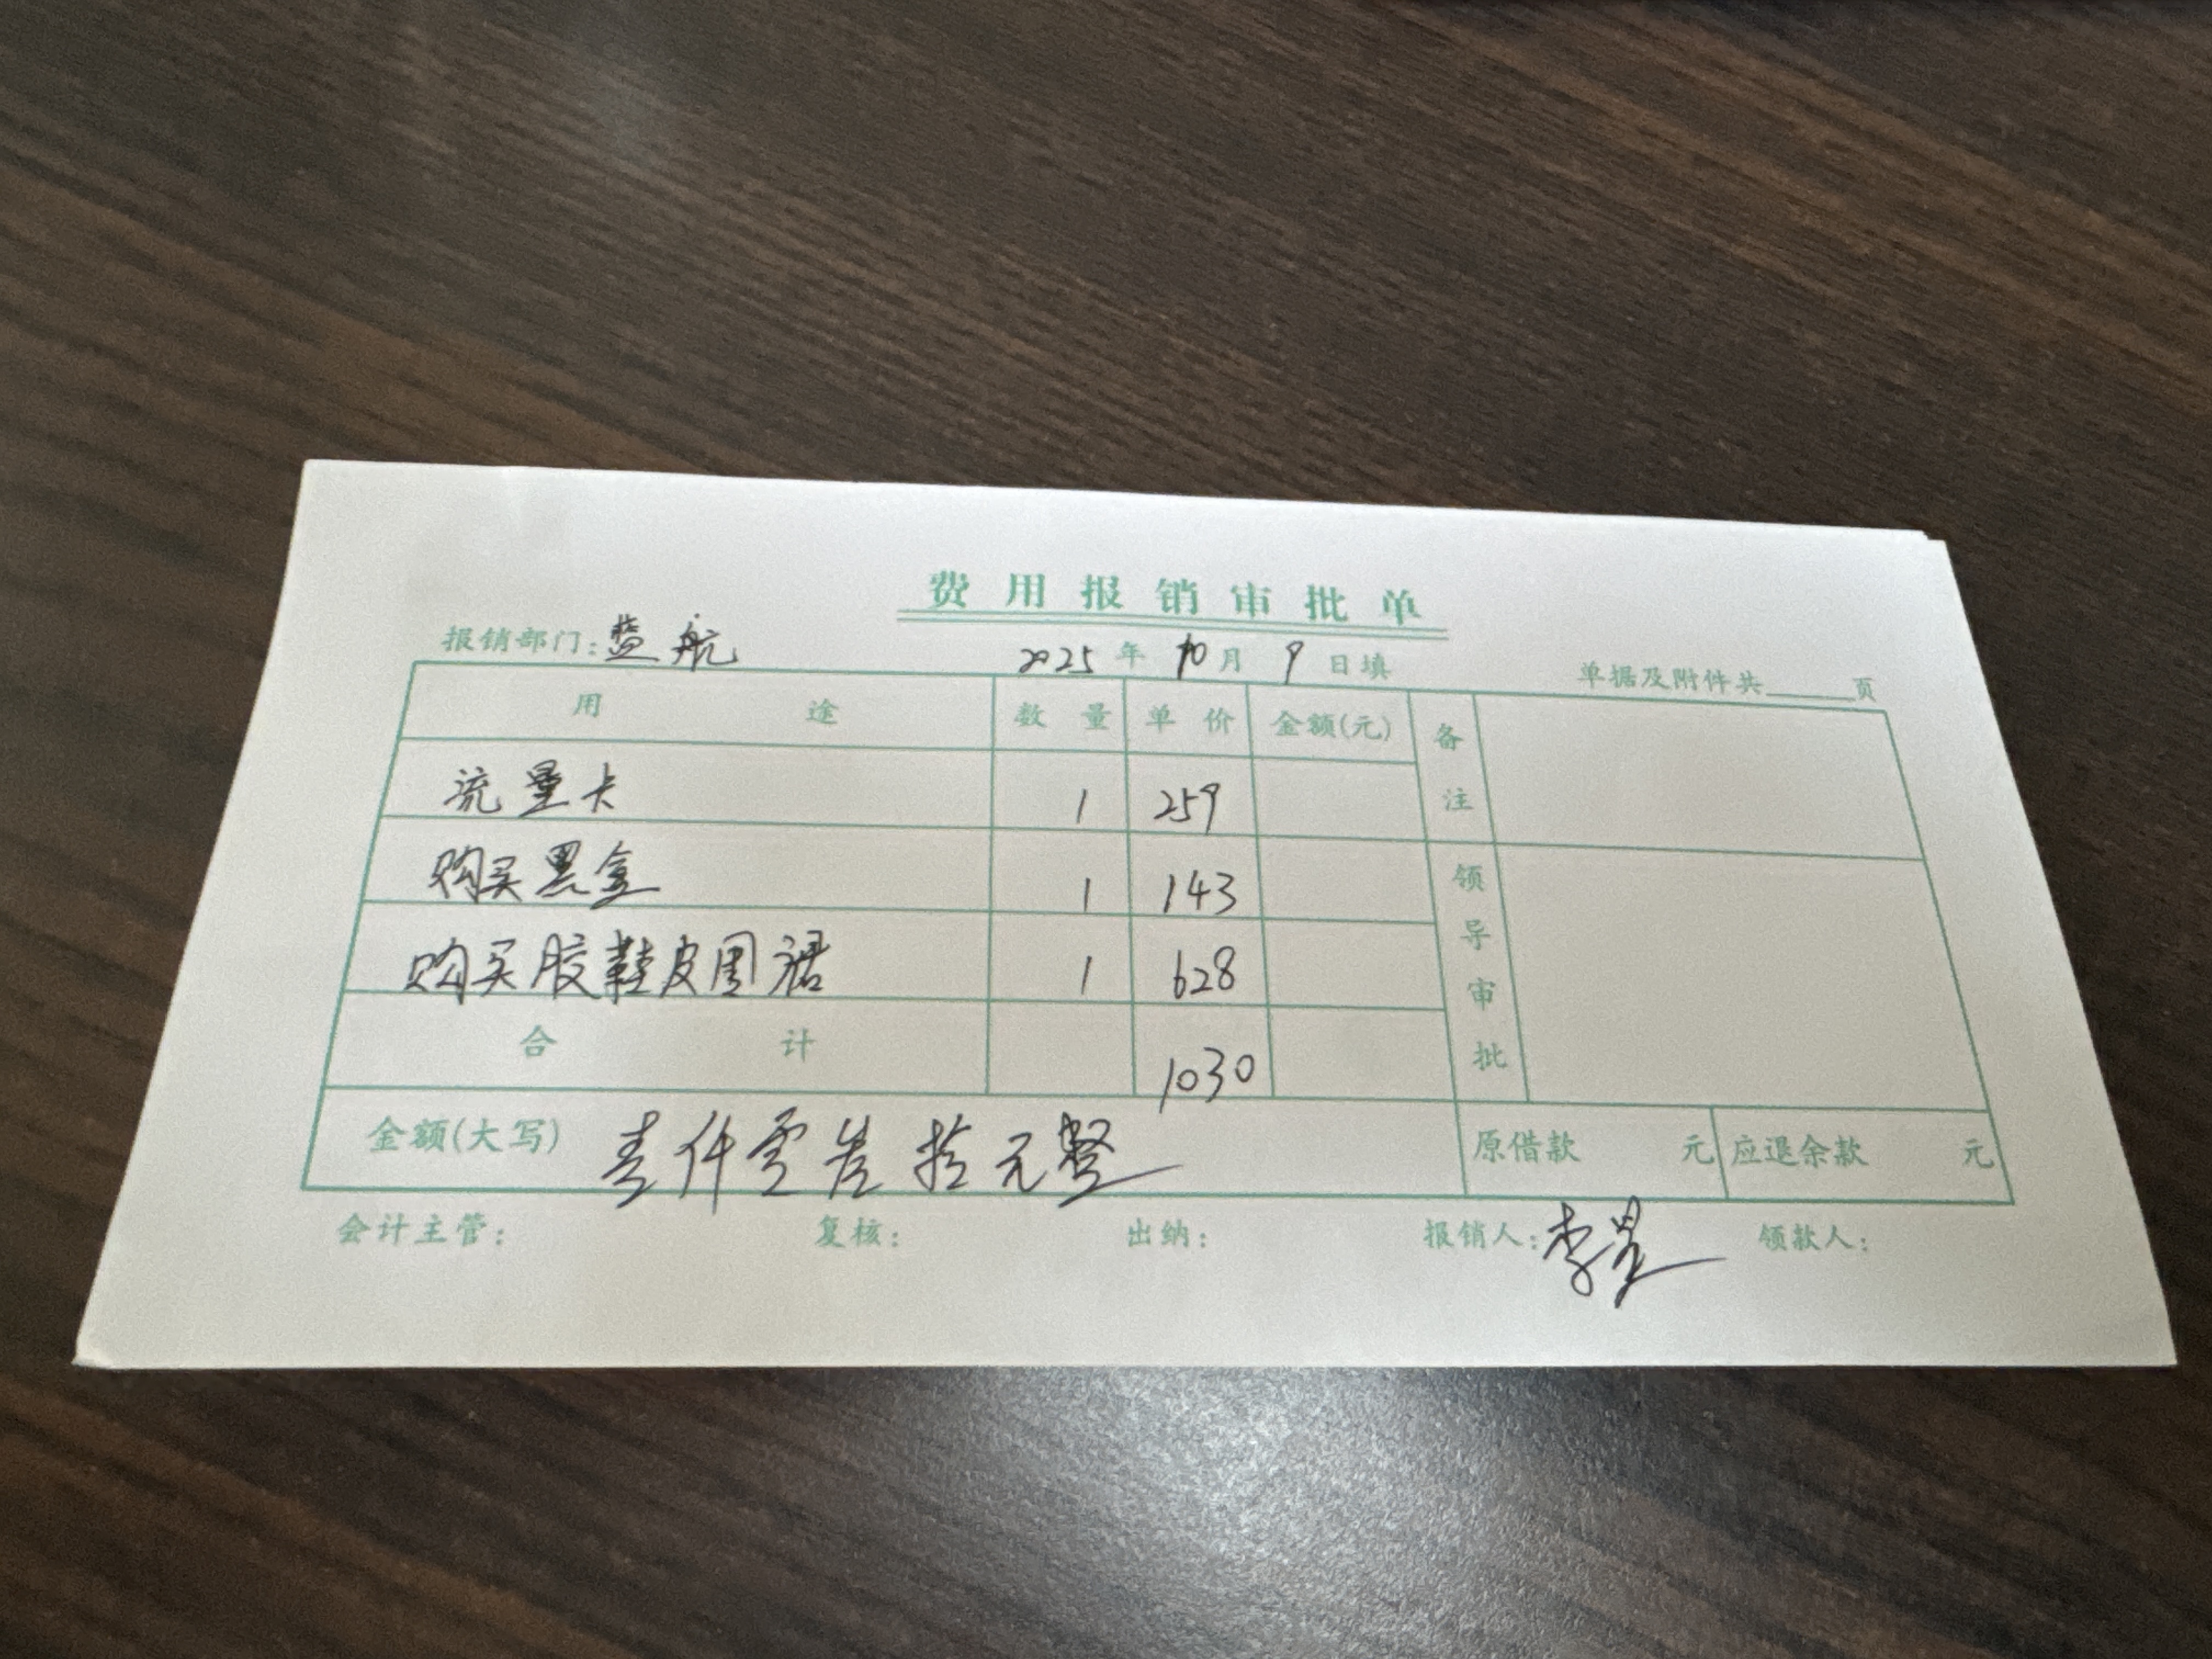 费用报销审批单
报销部门：蓝航 2025年10月9日填 单据及附件共____页
用途 数量 单价 金额(元) 备注
流量卡 1 259
购买黑盒 1 143
购买胶鞋皮围裙 1 628
领导审批
合计 1030
金额(大写) 壹仟零叁拾元整 原借款 元 应退余款 元
会计主管： 复核： 出纳： 报销人：李 领款人：